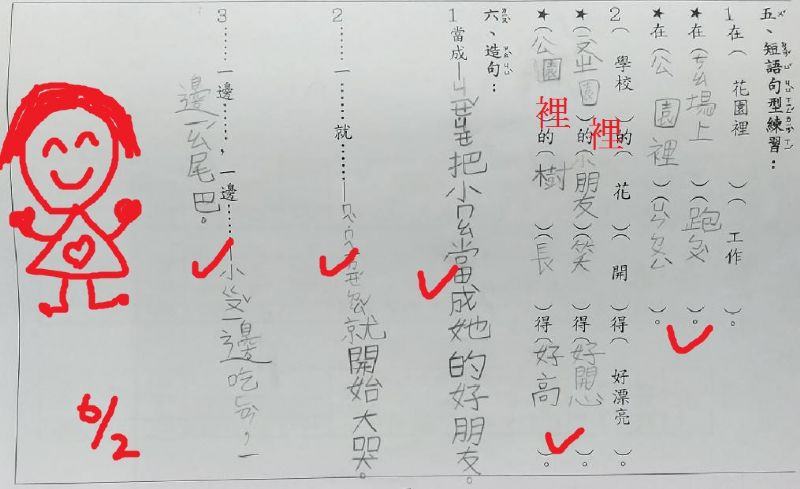 五、短語句型練習：
1在（ 花園裡 ）（ 工作 ）。
★在（ 場上）（跑ㄅㄨˋ）。
★在（公園裡）（ ）。
2（ 學校 ）的（ 花 ）（ 開 ）得（ 好漂亮 ）。
★（ 園裡）的（小朋友）（笑）得（好開心）。
★（公園裡）的（樹）（長）得（好高）。
六、造句：
1當成— 把小ㄇㄠ當成她的好朋友。
2……一……就……— 就開始大哭。
3……一邊……，一邊……—小ㄍㄡˇ一邊吃ㄈㄢˋ，一
邊ㄧㄠˊ尾巴。
6/2